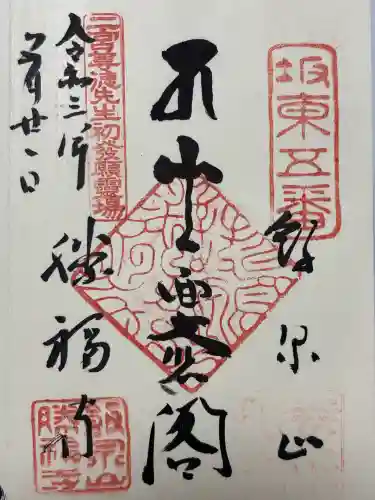 坂東五番
飯泉山
十一面大悲閣
二宮尊徳先生初發願靈場
勝福寺
令和三年
五月廿一日
飯泉山
勝福寺